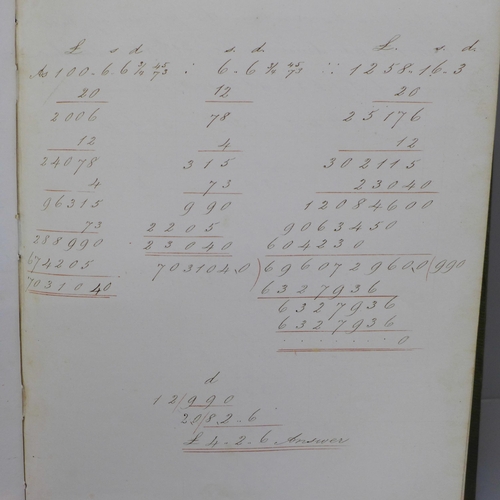 £ s d s. d £. s. d.
As 100-6-6 3/4 45/73 : 6-6 3/4 45/73 :: 1258-16-3
20 12 20
2006 78 25176
12 4 12
24078 315 302115
4 73 23040
96315 990 12084600
73 2205 9063450
288990 23040 604230
674205 7031040 ) 6960729600 ( 990
7031040 6327936
6327936
6327936
. . . . . . . 0
d
12/990
20/82.6
£4-2-6 Answer